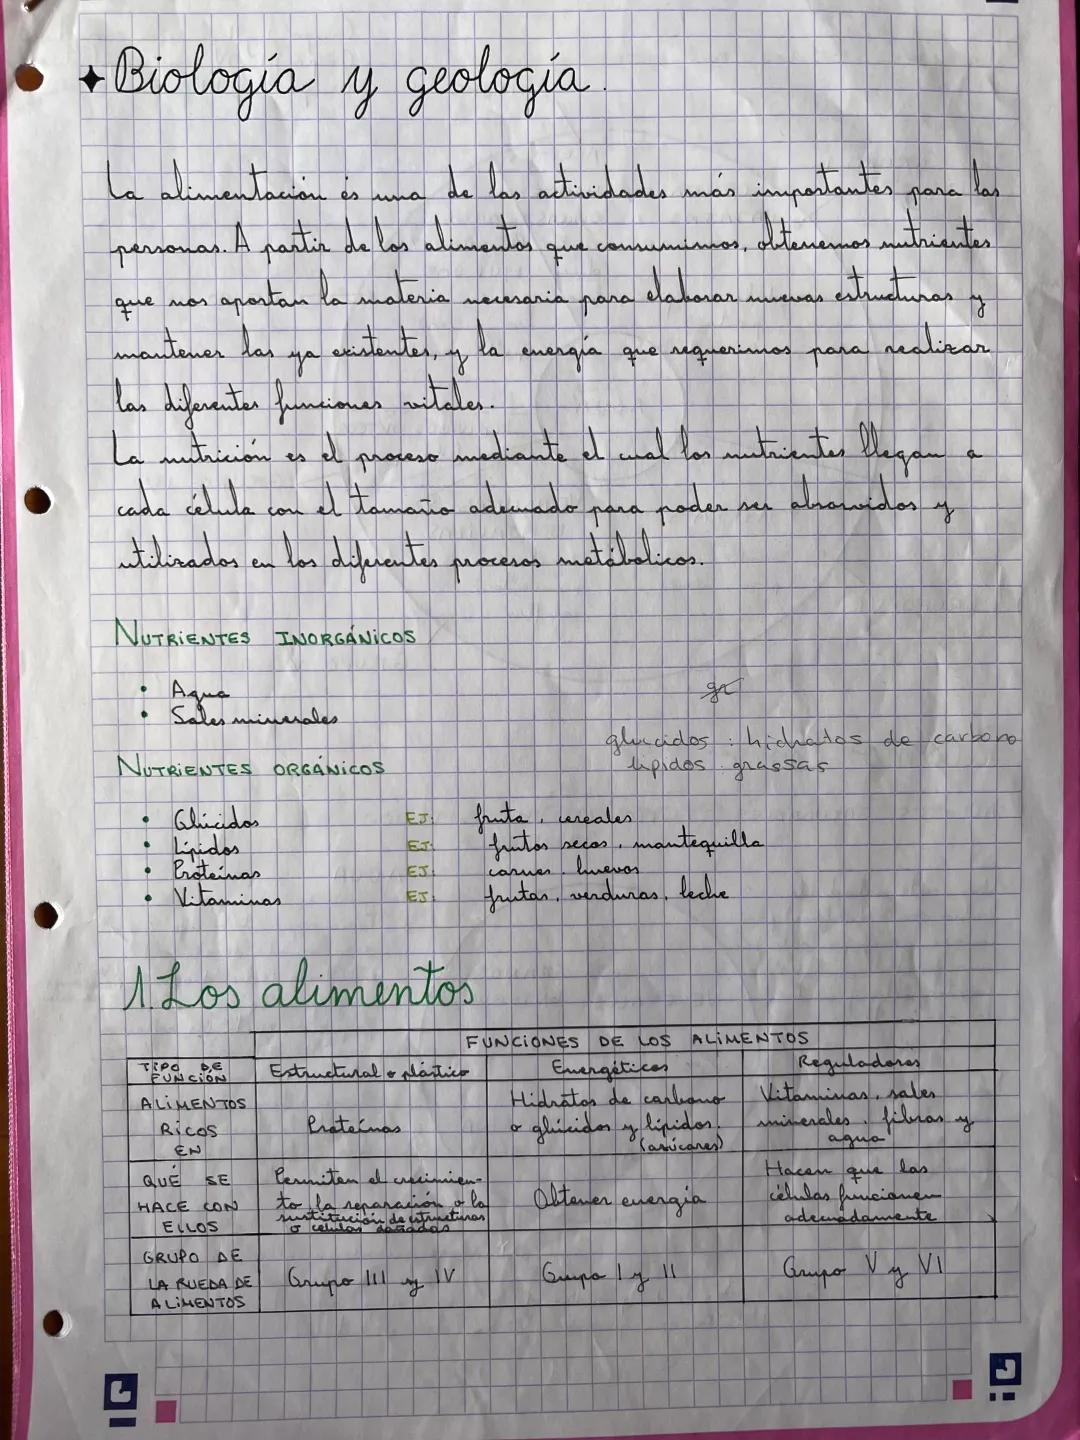 Biología y geología.
La alimentación és una de las actividades más importantes para las
personas. A partir de los alimentos que consumimos, obtenemos nutrientes
que nos aportan la materia necesaria para elaborar nuevas estructuras y
mantener las ya existentes, y la energía que requerimos para realizar
las diferentes funciones vitales.
La nutrición es el proceso mediante el cual los nutrientes llegan a
cada célula con el tamaño adecuado para poder ser absorvidos y
utilizados en los diferentes procesos metábolicos.
NUTRIENTES INORGÁNICOS
• Agua
• Sales minerales
glucidos : hidratos de carbono
lípidos grassas
NUTRIENTES ORGÁNICOS
• Glúcidos EJ: fruta, cereales
• Lípidos EJ: frutos secos, mantequilla
• Proteínas EJ: carnes, huevos
• Vitaminas EJ: frutas, verduras, leche
1. Los alimentos
FUNCIONES DE LOS ALIMENTOS
TIPO DE FUNCIÓN Estructural o plástico Energéticos Reguladores
ALIMENTOS RICOS EN Proteínas Hidratos de carbono o glúcidos y lípidos. (azúcares) Vitaminas, sales minerales, fibras y agua
QUÉ SE HACE CON ELLOS Permiten el crecimiento la reparación o la sustitución de estructuras o células dañadas Obtener energía Hacen que las células funcionen adecuadamente
GRUPO DE LA RUEDA DE ALIMENTOS Grupo III y IV Grupo I y II Grupo V y VI